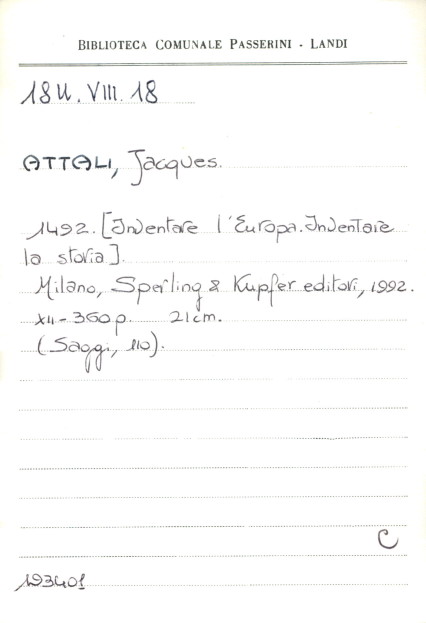 BIBLIOTECA COMUNALE PASSERINI - LANDI
18U. VIII. 18
ATTALI, Jacques.
1492. [Inventare l'Europa. Inventare
la storia].
Milano, Sperling & Kupfer editori, 1992.
XII-360 p. 21 cm.
(Saggi, 110).
C
193401